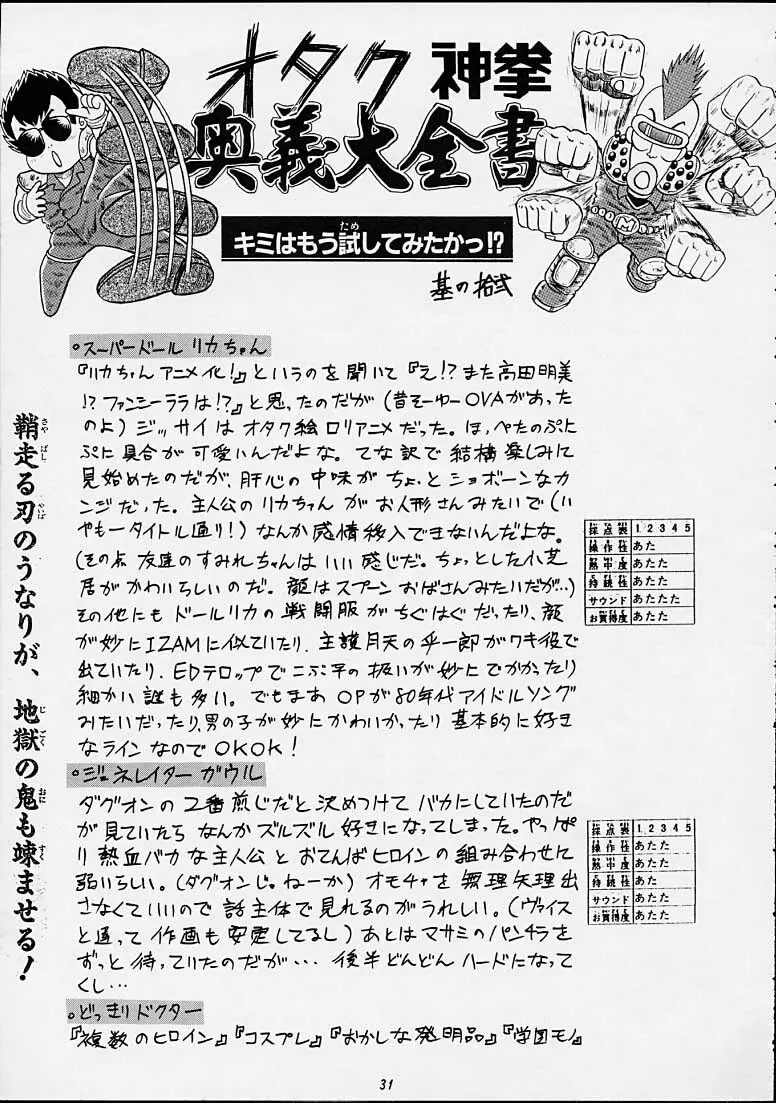 オタク神拳
奥義大全書
キミはもう試してみたかっ!?
基の拾弐
鞘走る刃のうなりが、地獄の鬼も竦ませる!
。スーパードール リカちゃん
『リカちゃんアニメ化!』というのを聞いて『え!?また高田明美
!?ファンシーララは!?』と思ったのだが(昔そーゆーOVAがあった
のよ)ジッサイはオタク絵ロリアニメだった。ほっぺたのぷに
ぷに具合が可愛いんだよな。てな訳で結構楽しみに
見始めたのだが、肝心の中味がちょっとショボーンなカ
ンジだった。主人公のリカちゃんがお人形さんみたいで(い
やもータイトル通り!)なんか感情移入できないんだよな。
(その点友達のすみれちゃんはいい感じだ。ちょっとした小芝
居がかわいらしいのだ。顔はスプーンおばさんみたいだが…)
その他にもドールリカの戦闘服がちぐはぐだったり、顔
が妙にIZAMに似ていたり、主護月天の乎一郎がワキ役で
出ていたり、EDテロップでこぶ平の扱いが妙にでかかったり
細かい謎も多い。でもまあOPが80年代アイドルソング
みたいだったり、男の子が妙にかわいかったり基本的に好き
なラインなのでOKOK!
採点表 1 2 3 4 5
操作性 あた
熱中度 あたた
持続性 あたた
サウンド あたたた
お買得度 あたた
。ジェネレイターガウル
ダグオンの二番煎じだと決めつけてバカにしていたのだ
が見ていたらなんかズルズル好きになってしまった。やっぱ
り熱血バカな主人公とおてんばヒロインの組み合わせに
弱いらしい。(ダグオンじゃねーか)オモチャを無理矢理出
さなくていいので話主体で見れるのがうれしい。(ヴァイス
と違って作画も安定してるし)あとはマサミのパンチラを
ずっと待っていたのだが…後半どんどんハードになって
くし…
採点表 1 2 3 4 5
操作性 あたた
熱中度 あたた
持続性 あた
サウンド あたた
お買得度 あたた
。どっきりドクター
『複数のヒロイン』『コスプレ』『おかしな発明品』『学園モノ』
31